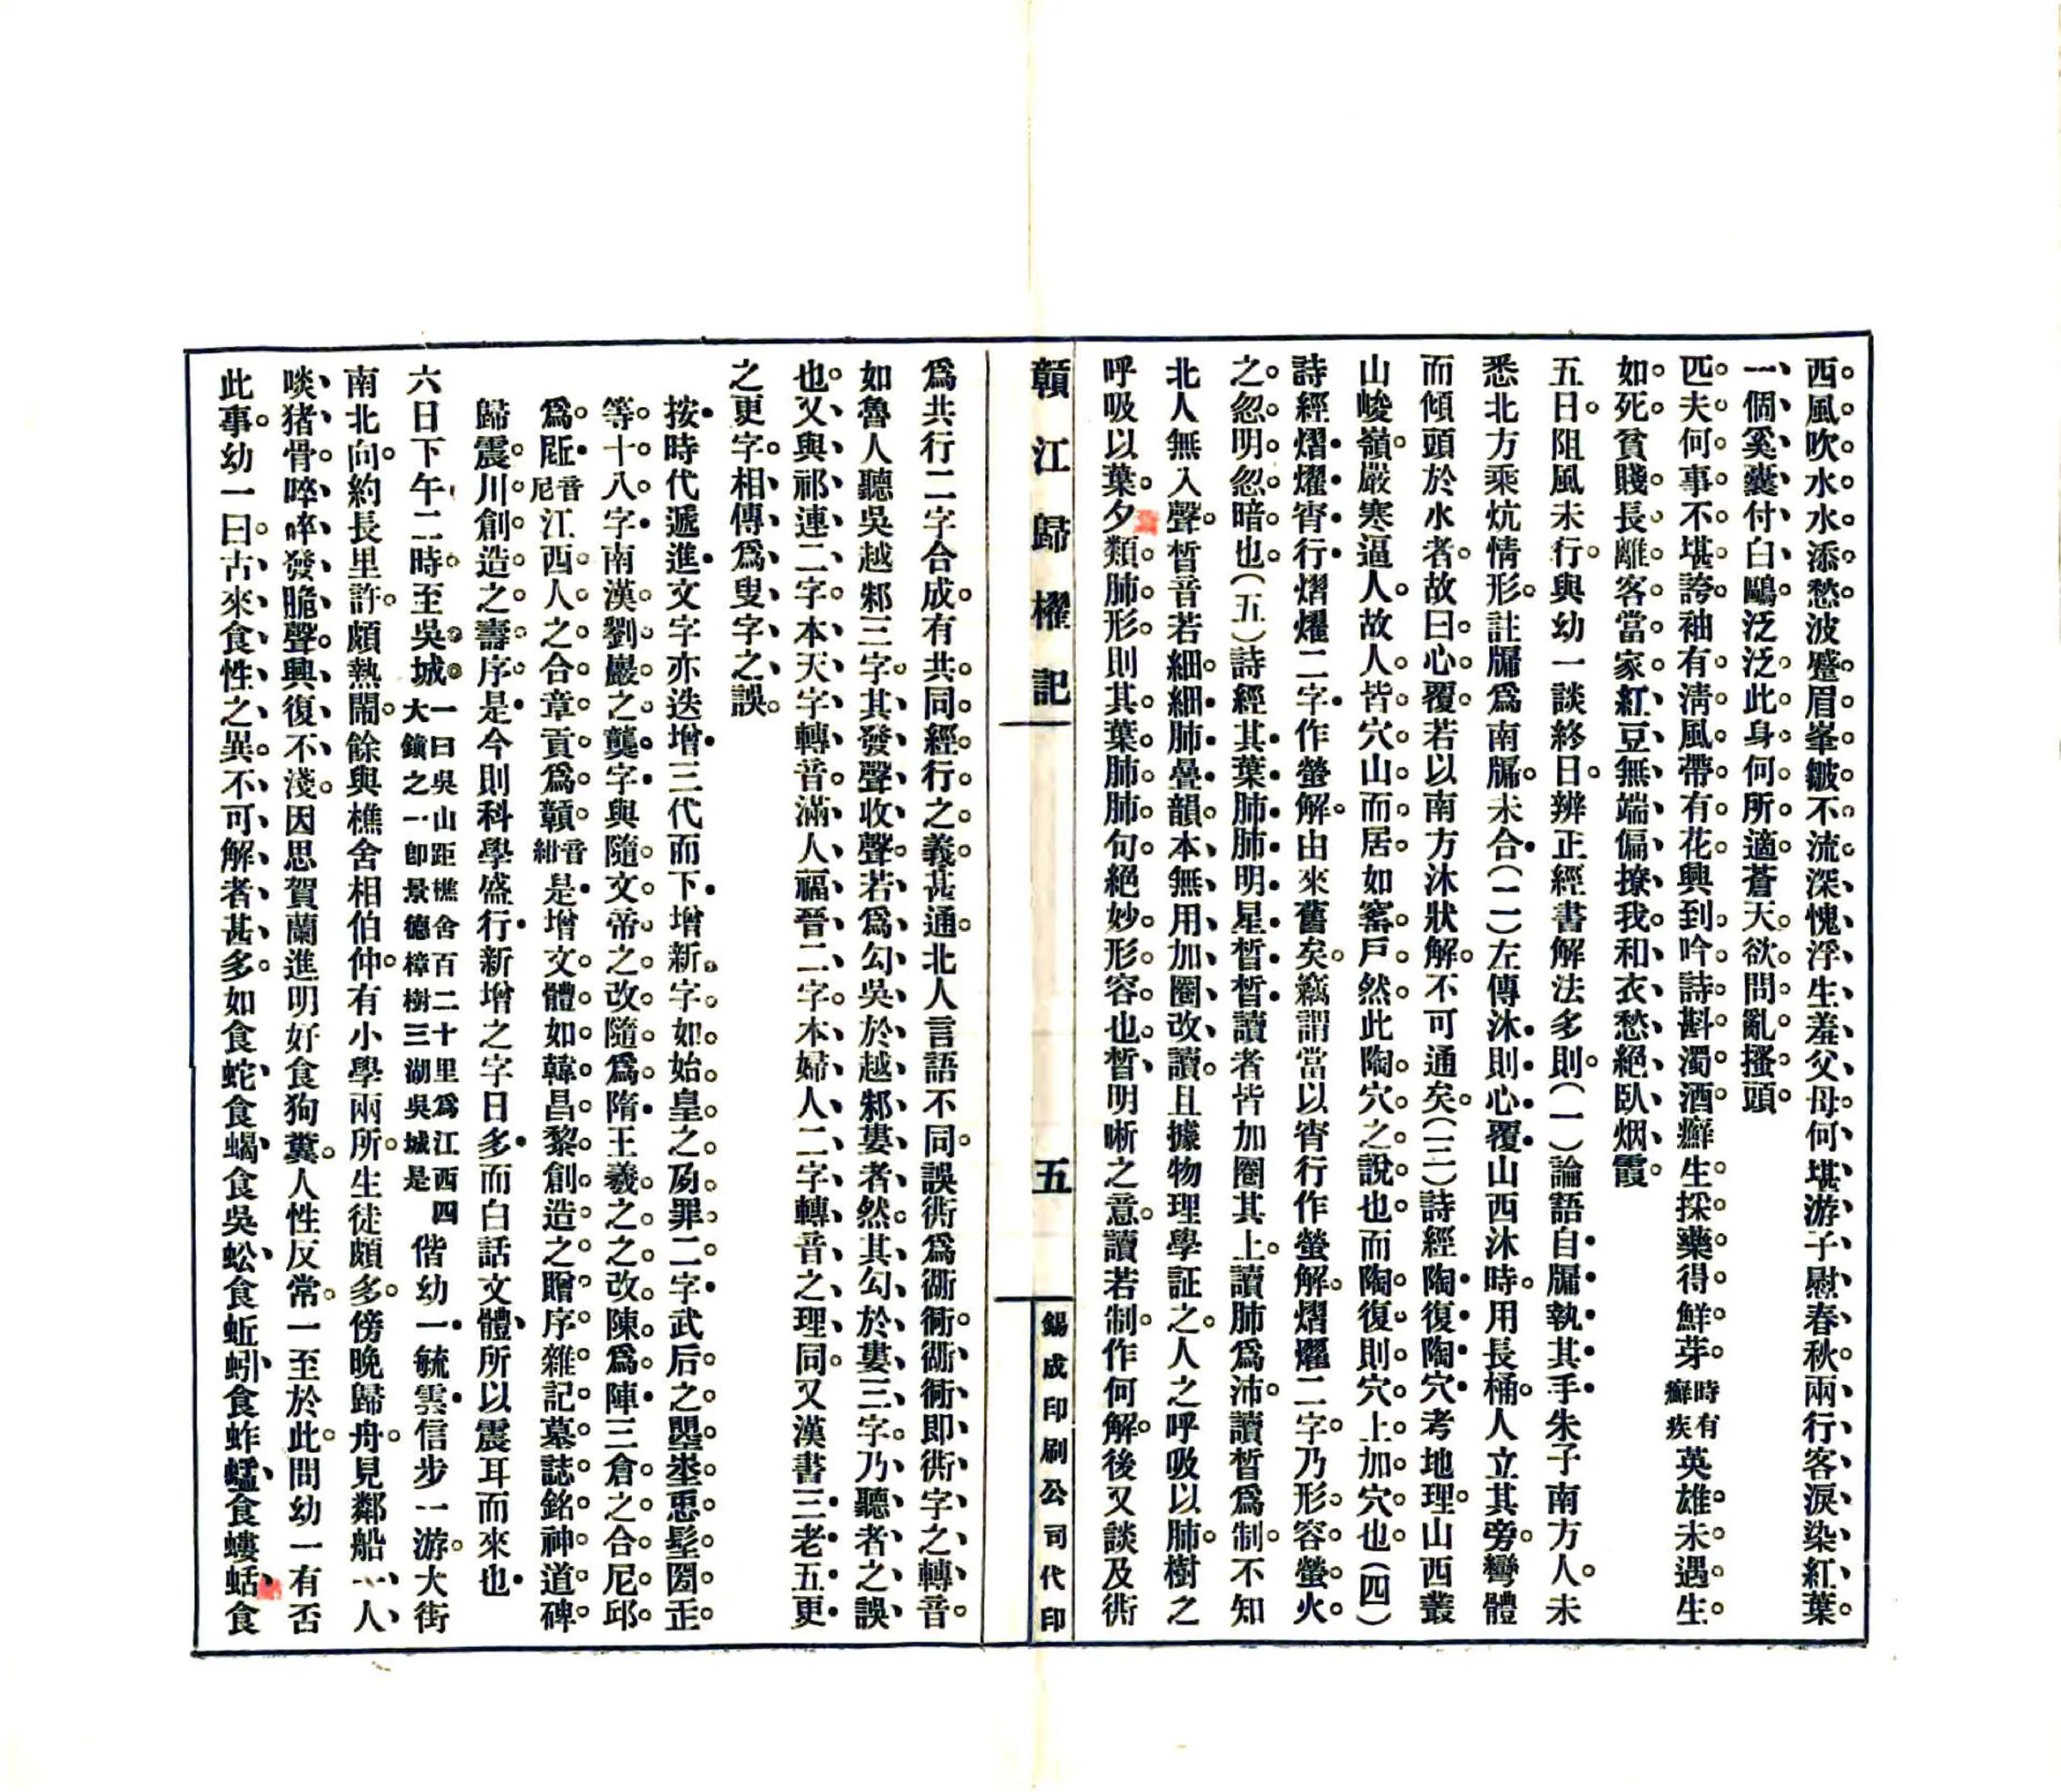 西風吹水水添愁波蹙眉峯皺不流深愧浮生羞父母何堪游子慰春秋兩行客淚染紅葉
一個奚囊付白鷗泛泛此身何所適蒼天欲問亂搔頭
匹夫何事不堪誇袖有淸風帶有花興到吟詩斟濁酒癬生採藥得鮮芽時有癬疾英雄未遇生
如死貧賤長離客當家紅豆無端偏撩我和衣愁絕臥烟霞
五日阻風未行與幼一談終日辨正經書解法多則(一)論語自牖執其手朱子南方人未
悉北方乘炕情形註牖爲南牖未合(二)左傳沐則心覆山西沐時用長桶人立其旁彎體
而傾頭於水者故曰心覆若以南方沐狀解不可通矣(三)詩經陶復陶穴考地理山西叢
山峻嶺嚴寒逼人故人皆穴山而居如窰戶然此陶穴之說也而陶復則穴上加穴也(四)
詩經熠燿宵行熠燿二字作螢解由來舊矣竊謂當以宵行作螢解熠燿二字乃形容螢火
之忽明忽暗也(五)詩經其葉肺肺明星晳晳讀者皆加圈其上讀肺爲沛讀晳爲制不知
北人無入聲晳音若細細肺疊韻本無用加圈改讀且據物理學証之人之呼吸以肺樹之
呼吸以葉夕類肺形則其葉肺肺句絕妙形容也晳明晰之意讀若制作何解後又談及衖
贛江歸櫂記
五
錫成印刷公司代印
爲共行二字合成有共同經行之義甚通北人言語不同誤衖爲衚衕衚衕即衖字之轉音
如魯人聽吳越邾三字其發聲收聲若爲勾吳於越邾婁者然其勾於婁三字乃聽者之誤
也又與祁連二字本天字轉音滿人福晉二字本婦人二字轉音之理同又漢書三老五更
之更字相傳爲叟字之誤
按時代遞進文字亦迭增三代而下增新字如始皇之罪二字武后之曌埊恖圀𠙺
等十八字南漢劉巖之龑字與隨文帝之改隨爲隋王羲之之改陳爲陣三倉之合尼邱
爲𡰱音尼江西人之合章貢爲贛音紺是增文體如韓昌黎創造之贈序雜記墓誌銘神道碑
歸震川創造之壽序是今則科學盛行新增之字日多而白話文體所以震耳而來也
六日下午二時至吳城一曰吳山距樵舍百二十里爲江西四大鎭之一即景德樟樹三湖吳城是偕幼一毓雲信步一游大街
南北向約長里許頗熱鬧餘與樵舍相伯仲有小學兩所生徒頗多傍晚歸舟見鄰船一人
啖猪骨啐啐發脆聲興復不淺因思賀蘭進明好食狗糞人性反常一至於此問幼一有否
此事幼一曰古來食性之異不可解者甚多如食蛇食蝎食吳蚣食蚯蚓食蚱蜢食螻蛄食